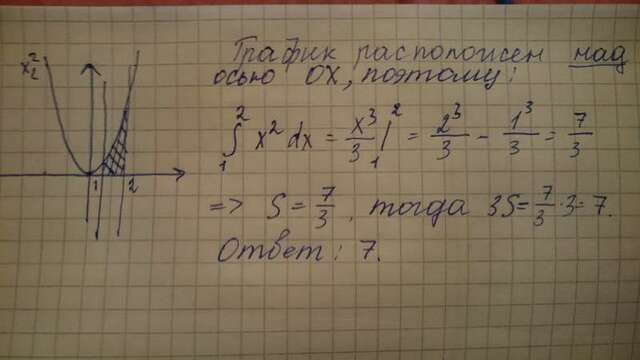 График расположен над
осью OX, поэтому:
x² 2
∫₁² x² dx = x³/3 |₁² = 2³/3 - 1³/3 = 7/3
1 2
=> S = 7/3, тогда 3S = 7/3 · 3 = 7.
Ответ: 7.